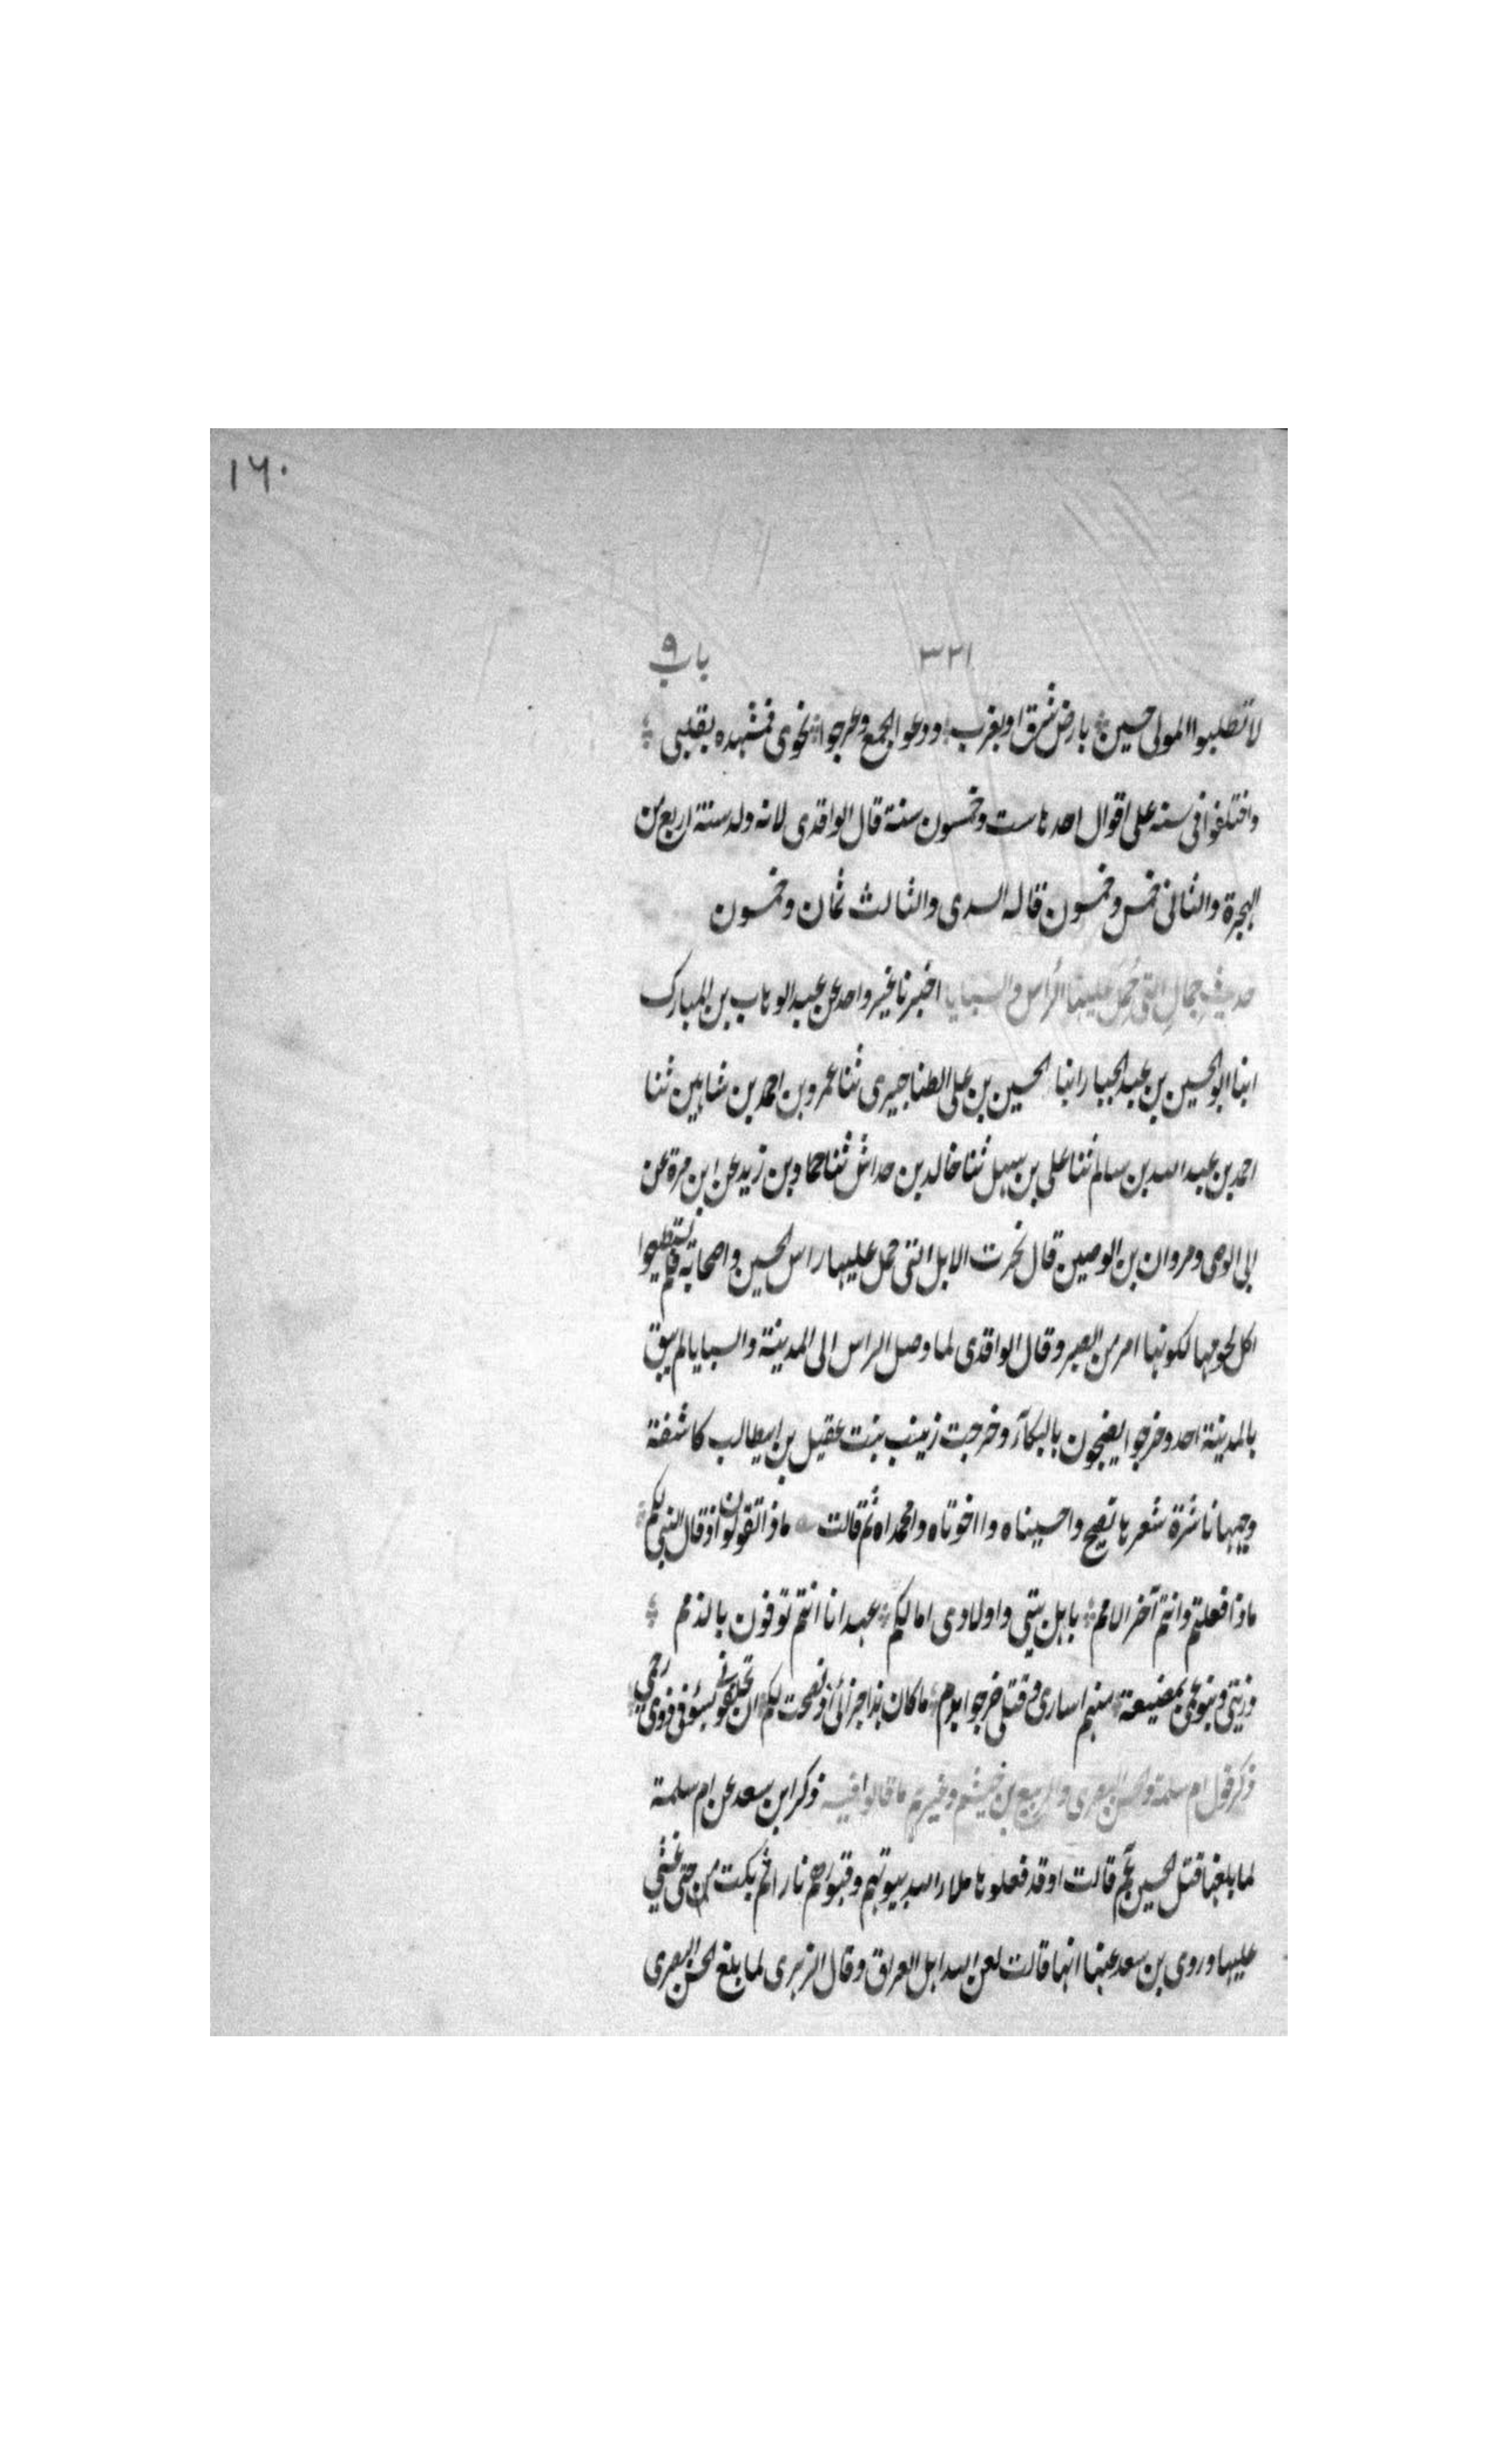 ١٦٠
٣٢١ باب ٩
لا تطلبوا المولى حسين بارض شرق او بغرب ودعوا الجمع وعرجوا نحوى فمشهده بقلبى
واختلفوا فى سنه على اقوال احدها ست وخمسون سنة قال الواقدى لانه ولد سنة اربع من
الهجرة والثانى خمس وخمسون قاله السدى والثالث ثمان وخمسون
حديث جمال التى حمل عليها الراس والسبايا اخبرنا غير واحد عن عبد الوهاب بن المبارك
ابنا ابو الحسين بن عبد الجبار ابنا الحسين بن على الطناجيرى ثنا عمرو بن احمد بن شاهين ثنا
احمد بن عبد الله بن سالم ثنا على بن سهل ثنا خالد بن خداش ثنا حماد بن زيد عن ابن مرة عن
ابى الوصى ومروان بن الوصين قال نحرت الابل التى حمل عليها راس الحسين واصحابه فلم يستطيعوا
اكل لحومها لكونها امر من الصبر وقال الواقدى لما وصل الراس الى المدينة والسبايا لم يبق
بالمدينة احد وخرجوا يضجون بالبكآء وخرجت زينب بنت عقيل بن ابيطالب كاشفة
وجهها ناشرة شعرها تصيح واحسيناه وااخوتاه وامحمداه ثم قالت ماذا تقولون اذ قال النبى لكم
ماذا فعلتم وانتم آخر الامم باهل بيتى واولادى امالكم عهد انا انتم توفون بالذمم
وذريتى وبنو عمى بمضيعة منهم اسارى وقتلى ضرجوا بدم ما كان هذا جزائى اذ نصحت لكم ان تخلفونى بسوء فى ذوى رحمى
ذكر قول ام سلمة والحسن البصرى والربيع بن خيثم وغيرهم ما قالوا فيه ذكر ابن سعد عن ام سلمة
لما بلغها قتل الحسين عم قالت اوقد فعلوها ملاء الله بيوتهم وقبورهم نارا ثم بكت حتى غشى
عليها وروى بن سعد عنها انها قالت لعن الله اهل العراق وقال الزهرى لما بلغ الحسن البصرى